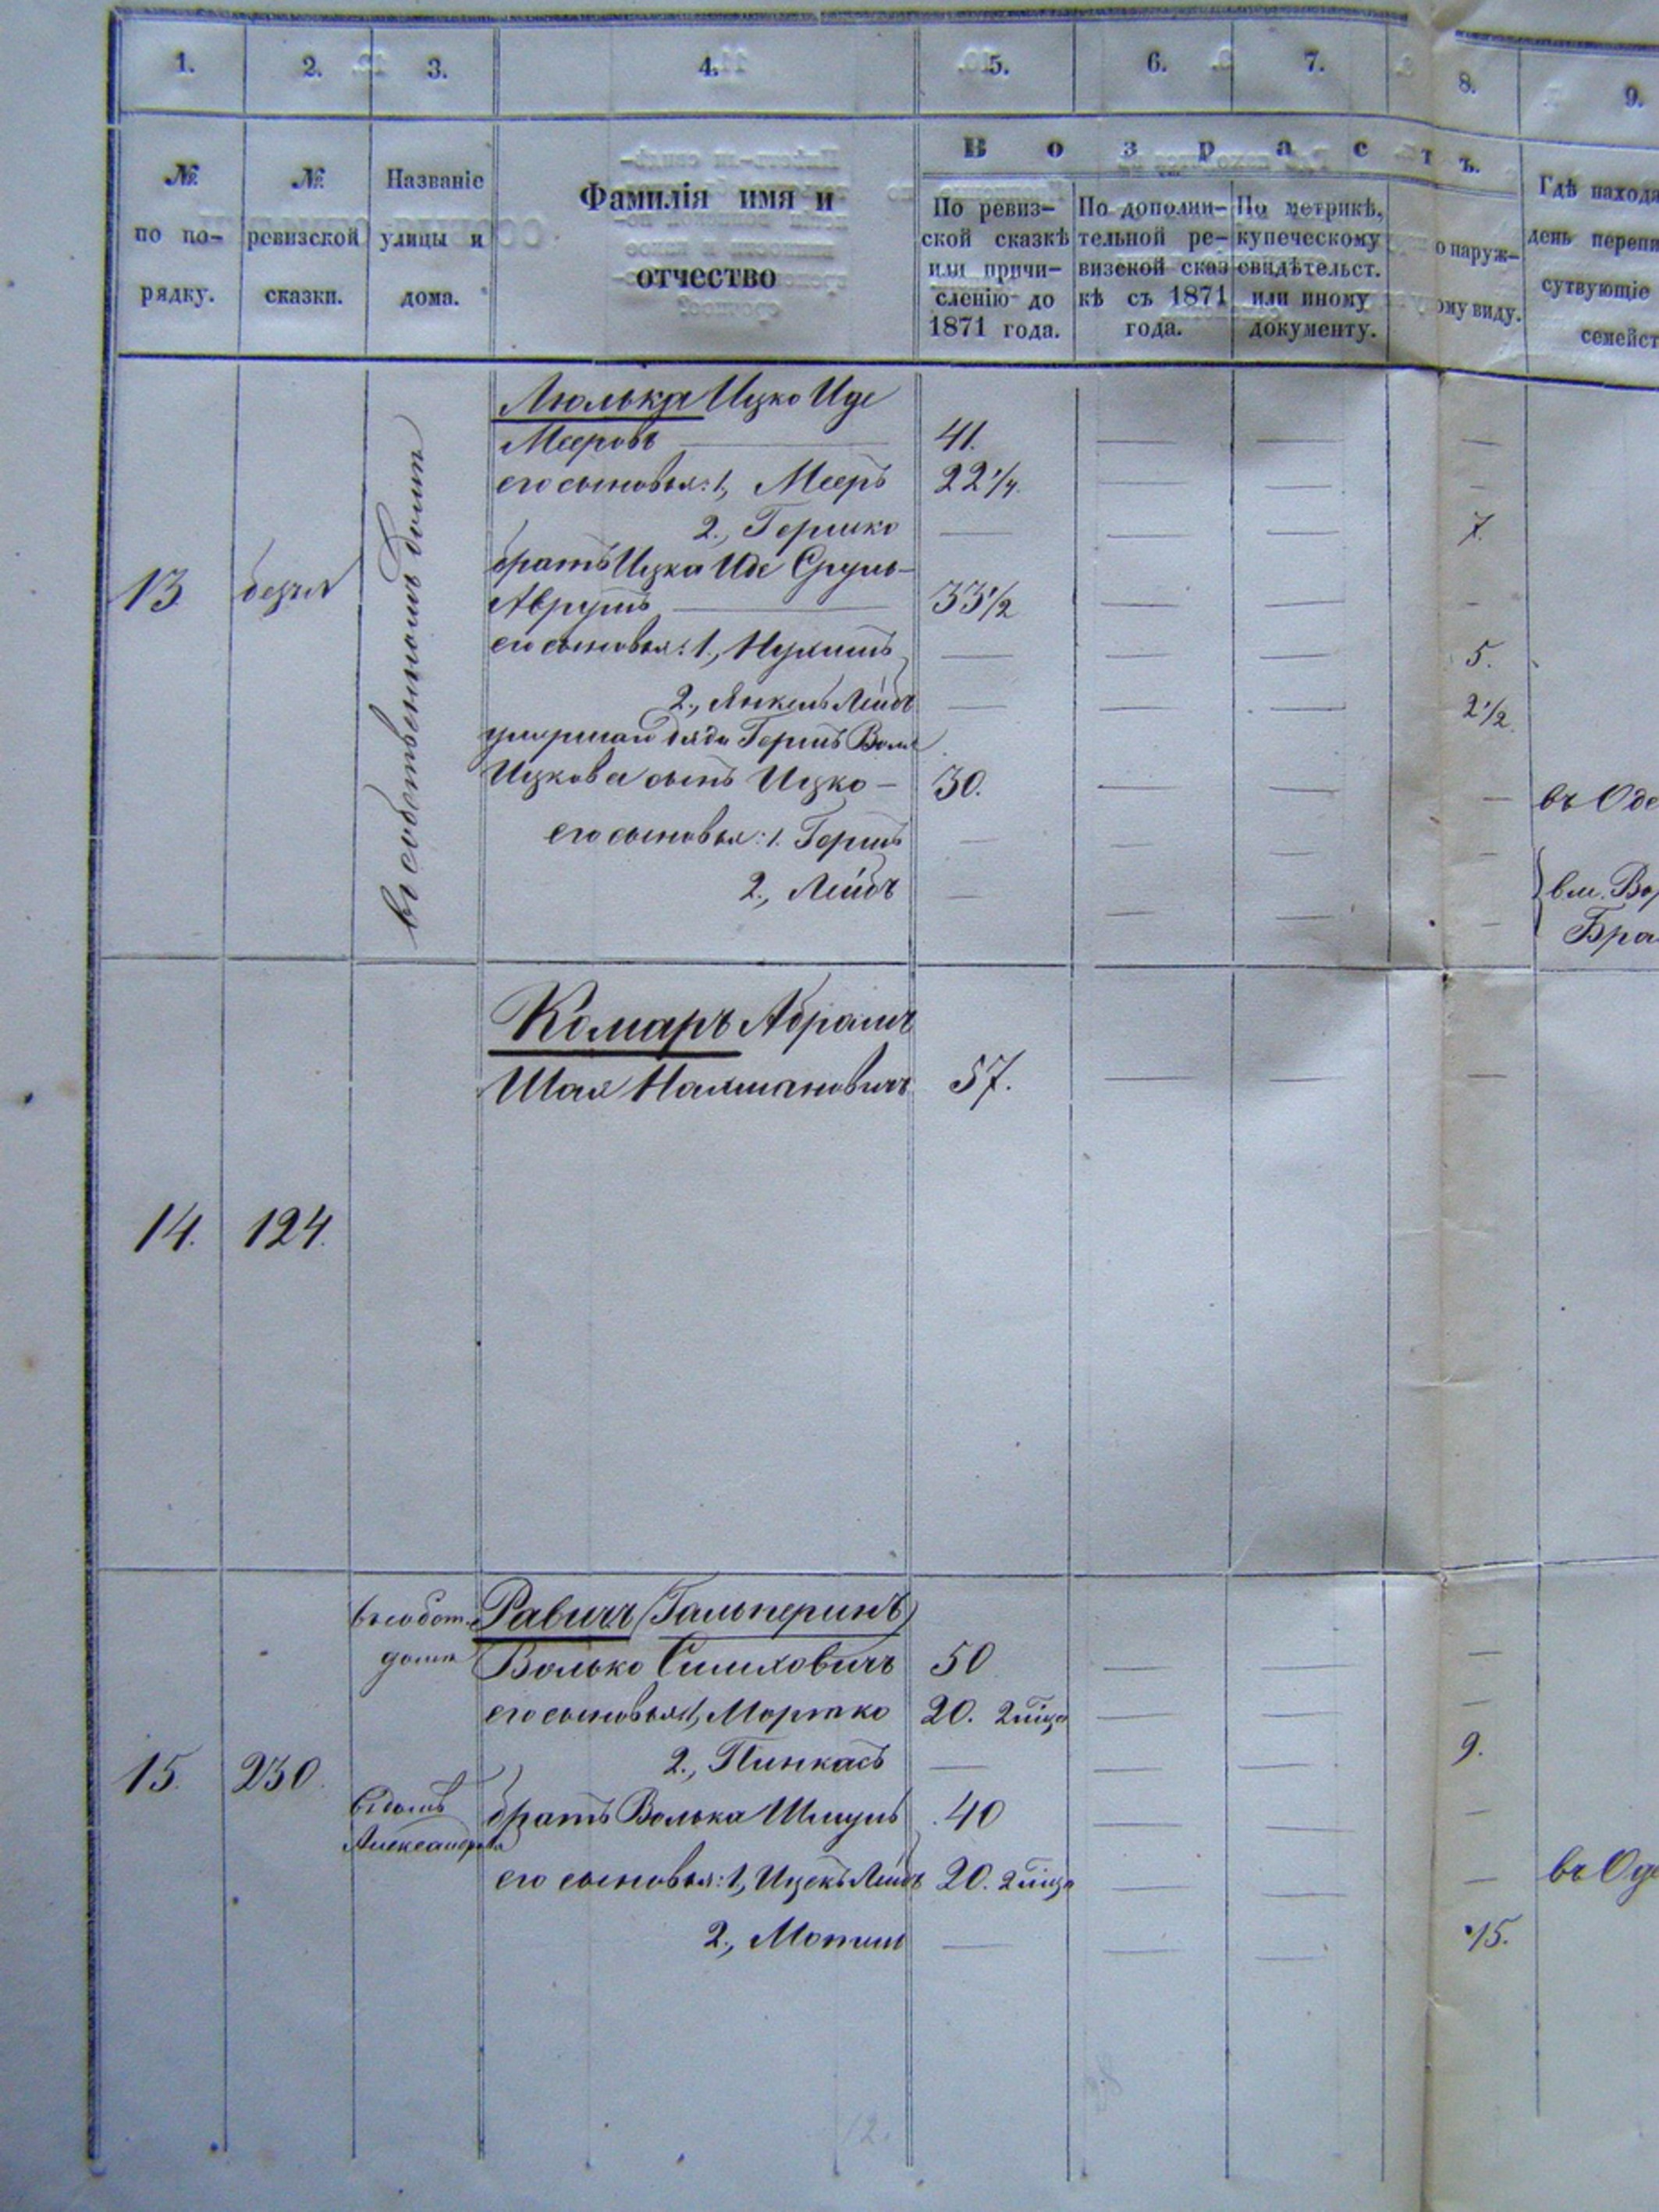 1. 2. 3. 4. 5. 6. 7. 8. 9.
№ по по-рядку.
№ ревизской сказки.
Названіе улицы и дома.
Фамилія имя и
отчество
В о з р а с т ъ.
По ревиз-
ской сказкѣ
или причи-
сленію до
1871 года.
По дополни-
тельной ре-
визской сказ
кѣ съ 1871
года.
По метрикѣ,
купеческому
свидѣтельст.
или иному
документу.
о наруж-
ому виду.
Гдѣ находя
день перепи
сутвующіе
семейст
13 безъ №
въ собственномъ домѣ
Люлька Ицко Иде
Мееровъ — 41. — — —
его сыновья: 1, Мееръ 22 1/4. — — —
2., Гершко — — — 7.
братъ Ицка Иде Сруль-
Аврумъ — 33 1/2 — — —
его сыновья: 1., Нухимъ — — — 5.
2., Янкель Лейбъ — — — 2 1/2.
умершаго дяди Гершъ Волы
Ицкова сынъ Ицко — 30. — — — въ Оде
его сыновья: 1. Гершъ — — — —
2., Лейбъ — — — — вм. Вор
Бра
14. 124.
Комаръ Абрамъ
Шая Нахмановичъ 57. — — —
15. 230.
въ собст. домѣ
Равичъ (Гальперинъ)
Волько Симховичъ 50 — — —
его сыновья 1, Мортко 20. — — —
2., Пинкасъ — — — 9.
въ домѣ
братъ Волька Шмуль 40 — — —
его сыновья: 1, Ицекъ Лейбъ 20. — — — въ Оде
2., Мотель — — — 15.